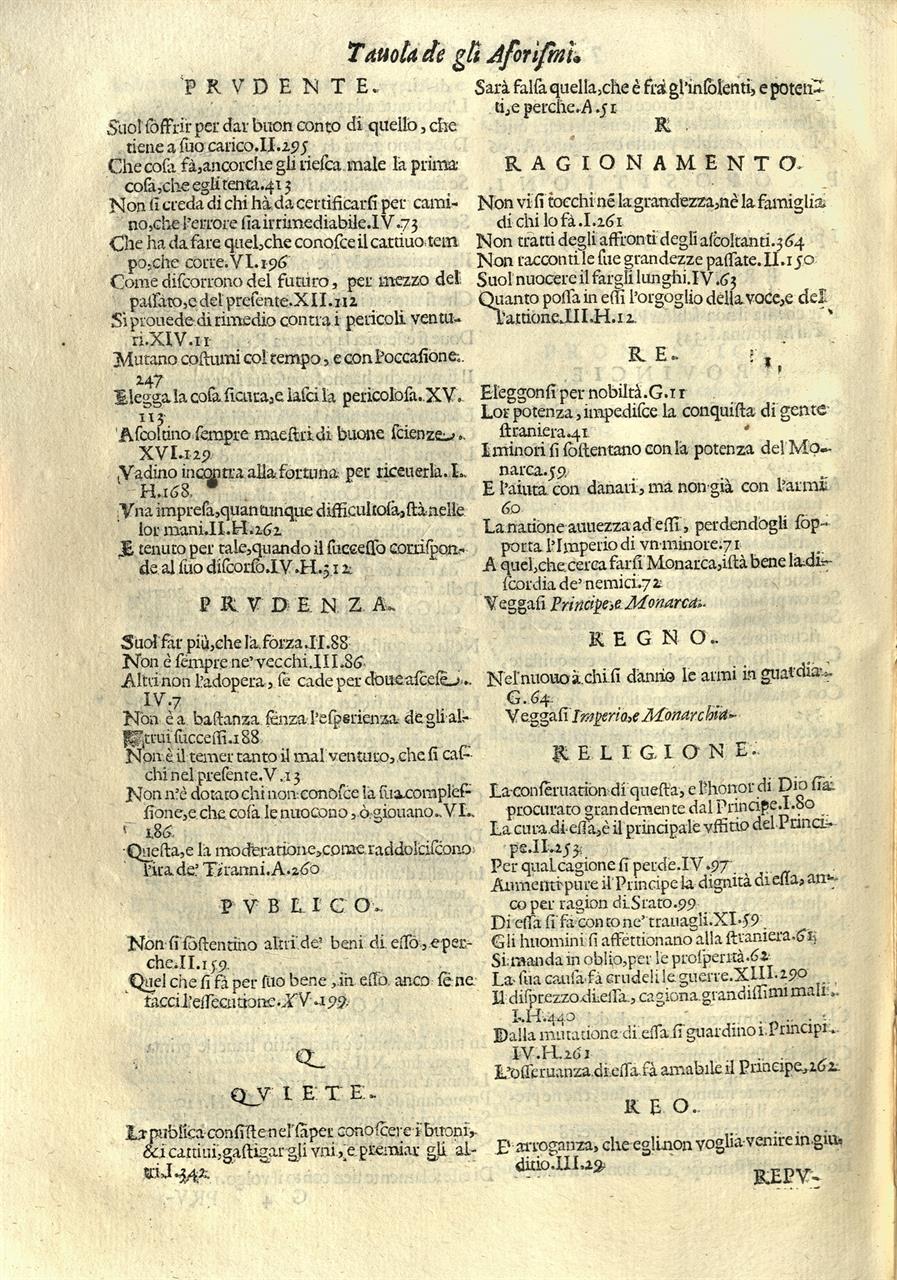 Tauola de gli Aforiſmi.
PRVDENTE.
Suol ſoffrir per dar buon conto di quello, che
tiene a ſuo carico.II.295
Che coſa fà, ancorche gli rieſca male la prima
coſa, che egli tenta.413
Non ſi creda di chi hà da certificarſi per cami-
no, che l'errore ſia irrimediabile.IV.73
Che ha da fare quel, che conoſce il cattiuo tem
po, che corre.VI.196
Come diſcorrono del futuro, per mezzo del
paſſato, e del preſente.XII.112
Si prouede di rimedio contra i pericoli ventu-
ri.XIV.11
Mutano coſtumi col tempo, e con l'occaſione.
247
Elegga la coſa ſicura, e laſci la pericoloſa. XV.
113
Aſcoltino ſempre maeſtri di buone ſcienze.
XVI.129
Vadino incontra alla fortuna per riceuerla. I.
H.168
Vna impreſa, quantunque difficultoſa, ſtà nelle
lor mani.II.H.262
E tenuto per tale, quando il ſucceſſo corriſpon-
de al ſuo diſcorſo.IV.H.312
PRVDENZA.
Suol far più, che la forza.II.88
Non è ſempre ne' vecchi.III.86
Altri non l'adopera, ſe cade per doue aſceſe.
IV.7
Non è a baſtanza ſenza l'eſperienza de gli al-
trui ſucceſſi.188
Non è il temer tanto il mal venturo, che ſi caſ-
chi nel preſente.V.13
Non n'è dotato chi non conoſce la ſua compleſ-
ſione, e che coſa le nuocono, ò giouano. VI.
186
Queſta, e la moderatione, come raddolciſcono
l'ira de' Tiranni.A.260
PVBLICO.
Non ſi ſoſtentino altri de' beni di eſſo, e per-
che.II.159
Quel che ſi fà per ſuo bene, in eſſo anco ſe ne
tacci l'eſſecutione.XV.199
Q
QVIETE.
La publica conſiste nel ſaper conoſcere i buoni,
& i cattiui, gaſtigar gli vni, e premiar gli al-
tri.I.342
Sarà falſa quella, che è frà gl'inſolenti, e poten-
ti, e perche.A.51
R
RAGIONAMENTO.
Non vi ſi tocchi nè la grandezza, nè la famiglia
di chi lo fà.I.261
Non tratti degli affronti degli aſcoltanti.364
Non racconti le ſue grandezze paſſate.II.150
Suol nuocere il fargli lunghi.IV.63
Quanto poſſa in eſſi l'orgoglio della voce, e del
l'attione.III.H.12
RE.
Eleggonſi per nobiltà.G.11
Lor potenza, impediſce la conquiſta di gente
ſtraniera.41
I minori ſi ſoſtentano con la potenza del Mo-
narca.59
E l'aiuta con danari, ma non già con l'armi
60
La natione auuezza ad eſſi, perdendogli ſop-
porta l'Imperio di vn minore.71
A quel, che cerca farſi Monarca, iſtà bene la di-
ſcordia de' nemici.72
Veggaſi Principe, e Monarca.
REGNO.
Nel nuouo à chi ſi danno le armi in guardia.
G.64
Veggaſi Imperio, e Monarchia.
RELIGIONE.
La conſeruation di queſta, e l'honor di Dio ſia
procurato grandemente dal Principe.I.80
La cura di eſſa, è il principale vffitio del Princi-
pe.II.253
Per qual cagione ſi perde.IV.97
Aumenti pure il Principe la dignità di eſſa, an-
co per ragion di Stato.99
Di eſſa ſi fà conto ne' trauagli.XI.59
Gli huomini ſi affettionano alla ſtraniera.61
Si manda in oblio, per le proſperità.62
La ſua cauſa fà crudeli le guerre.XIII.290
Il diſprezzo di eſſa, cagiona grandiſſimi mali.
I.H.440
Dalla mutatione di eſſa ſi guardino i Principi.
IV.H.261
L'oſſeruanza di eſſa fà amabile il Principe, 262
REO.
E' arroganza, che egli non voglia venire in giu
ditio.III.29
REPV-